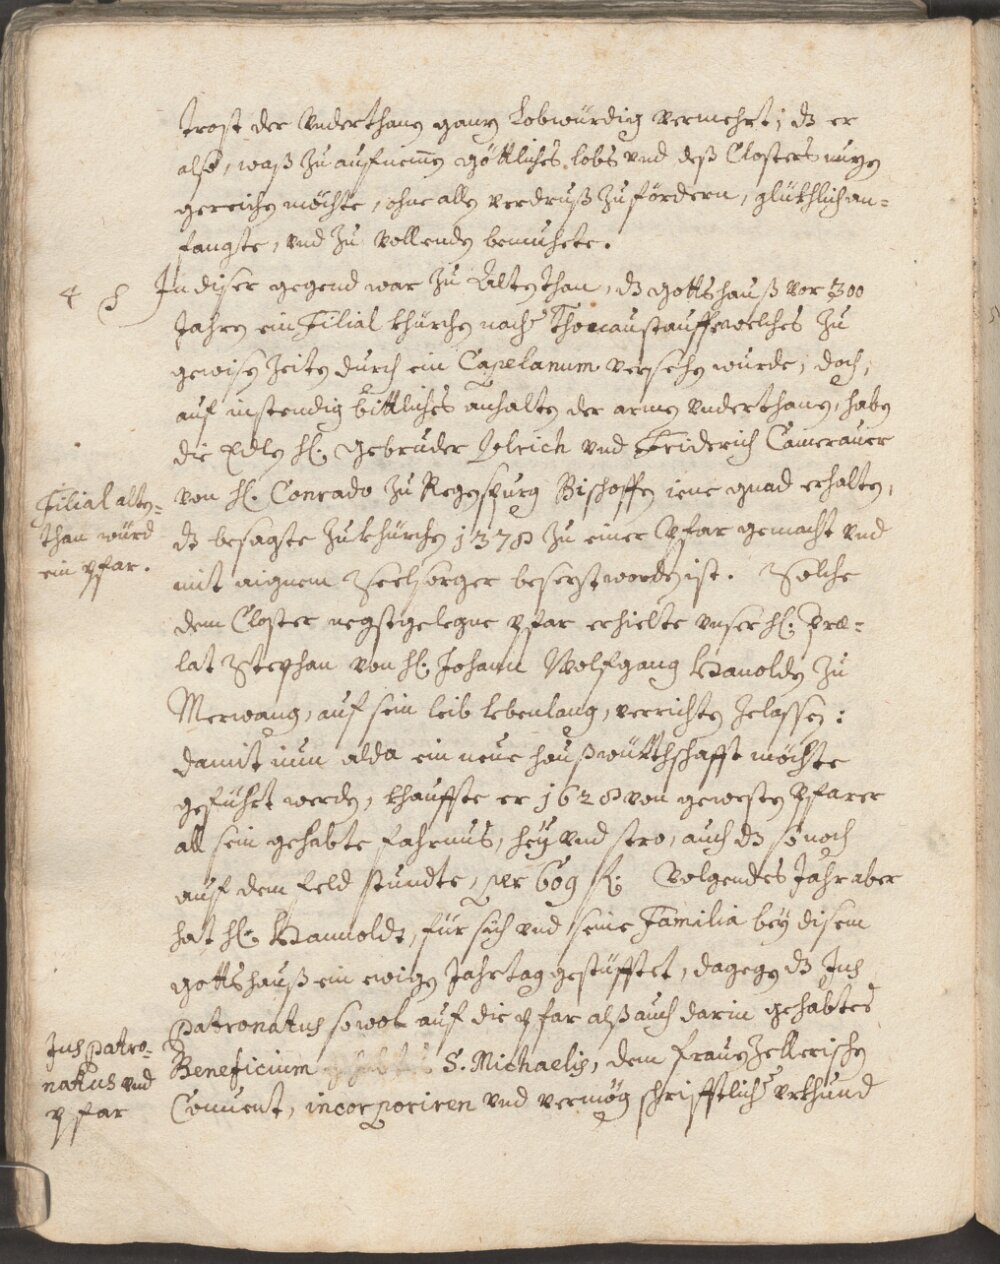 trost der underthanen ganz Lobwürdig vermehrt; dz er
also, waß zu aufnemmen göttliches lobs und deß Closters nuzen
gereichen möchte, ohne allen verdruß zufördern, glükhlich an=
fangte, und zu vollenden bemuhete.
4 § In diser gegend war zu Alten than, dz gottshauß vor 300
Jahren ein Filial khürchen nach Thonaustauff welches zu
gewisen zeiten durch ein Capelanum versehen wurde; doch,
auf instendig bittliches anhalten der armen underthanen, haben
die Edlen H. gebrüder Ulrich und Friderich Camerauer
von H. Conrado zu Regenspurg Bischoffen iene gnad erhalten,
Filial alten=
than würd
ein pfar.
dz besagte zukhürchen 1378 zu einer Pfar gemacht und
mit aignem Seelsorger besezt worden ist. Solche
dem Closter negstgelegne pfar erhielte unser H. Præ=
lat Stephan von H. Johann Wolfgang Hanolden zu
Merwang, auf sein leib lebenlang, verrichten zelassen:
damit nun alda ein neue haußwürthschafft möchte
geführt werden, khauffte er 1628 von gewesten Pfarer
all sein gehabte fahrnus, hey und stro, auch dz so noch
auf dem feld stundte, per 609 fl. Volgendes Jahr aber
hat H. Hannoldt, für sich und seine Familia bey disem
gottshauß ein ewigen Jahrtag gestüfftet, dagegen dz Jus
Patronatus sowol auf die pfar alß auch darin gehabtes
Jus patro=
natus und
pfar
Beneficium S. Michaelis, dem frauenzellerischen
Convent, incorporiren und vermög schrifftlich urkhund